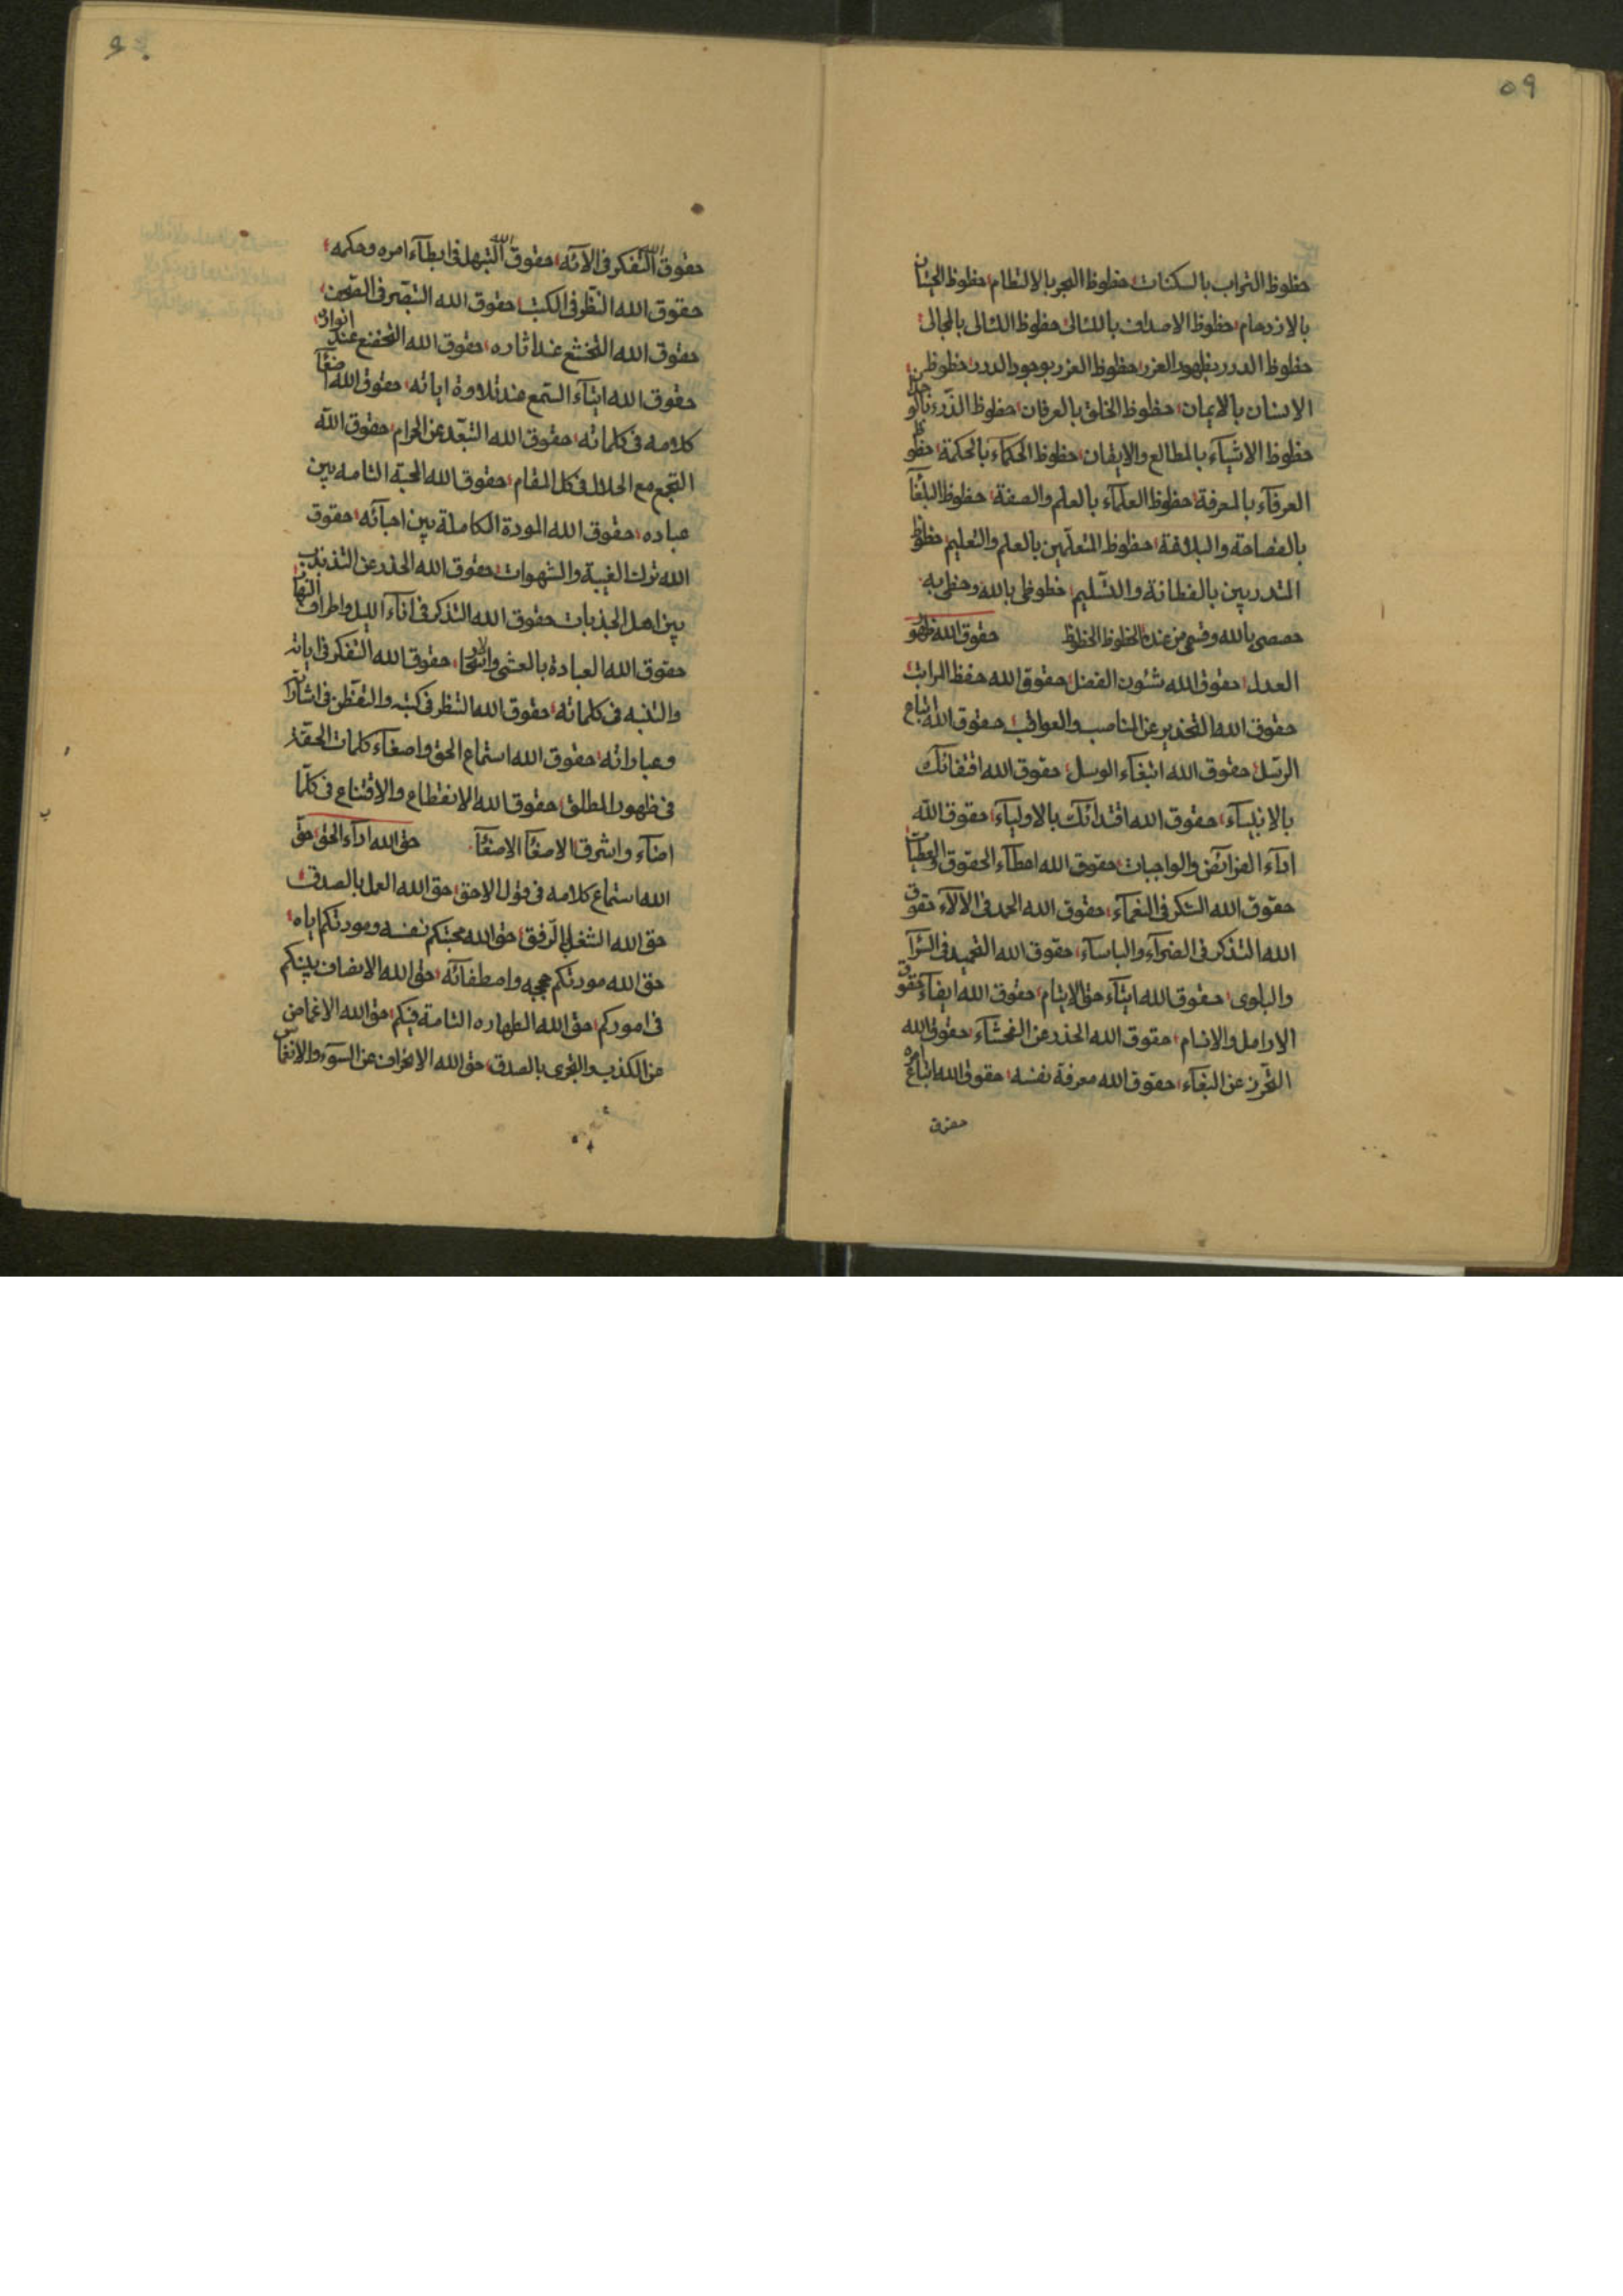 ٥٩
حظوظ التراب بالسكنات حظوظ البحر بالالتطام حظوظ الحيتان
بالازدحام حظوظ الاصداف باللئالی حظوظ اللئالی بالمجالی
حظوظ الدرر بظهور العزر حظوظ العزر بوجود الدرر حظوظ
الانسان بالایمان حظوظ الخلق بالعرفان حظوظ الذرء
حظوظ الاشیآء بالمطالع والایقان حظوظ الحکمآء بالحکمة حظوظ
العرفآء بالمعرفة حظوظ العلمآء بالعلم والصفة حظوظ البلغآء
بالفصاحة والبلاغة حظوظ المتعلّمین بالعلم والتعلیم حظوظ
المتدربین بالفطانة والتسلیم حظوظی بالله وحظی به
حصصی بالله وقسمی من عنده الحظوظ الحظوظ حقوق الله ظهور
العدل حقوق الله شئون الفضل حقوق الله حفظ المراتب
حقوق الله التحذیر عن المناصب والعواقب حقوق الله اتباع
الرسل حقوق الله ابتغآء الوسل حقوق الله اقتفائک
بالانبیآء حقوق الله اقتدائک بالاولیآء حقوق الله
ادآء الفرائض والواجبات حقوق الله اعطآء الحقوق والعطیات
حقوق الله الشکر فی النعمآء حقوق الله الحمد فی الآلآء حقوق
الله التذکر فی الضرآء والباسآء حقوق الله التحمید فی السّرآء
والبلوی حقوق الله ایتآء حق الایتام حقوق الله ایفآء حقوق
الارامل والانام حقوق الله الحذر عن الفحشآء حقوق الله
التحرز عن البغآء حقوق الله معرفة نفسه حقوق الله اتباع امره
حقوق
٦٠
حقوق الله التفکر فی آلائه حقوق الله التبهل فی ابطآء امره وحکمه
حقوق الله النظر فی الکتب حقوق الله التبصر فی
حقوق الله التخشع عند اثاره حقوق الله التخضع عند انواره
حقوق الله ایتآء السمع عند تلاوة ایاته حقوق الله اصغآء
کلامه فی کلماته حقوق الله التبعّد عن الحرام حقوق الله
التجمع مع الحلال فی کل المقام حقوق الله المحبة التامه بین
عباده حقوق الله المودة الکاملة بین احبآئه حقوق
الله ترک الغیبة والشهوات حقوق الله الحذر عن التذبذب
بین اهل الجذبات حقوق الله التذکر فی انآء اللیل واطراف النهار
حقوق الله العبادة بالعشی والاسحار حقوق الله التفکر فی ایاته
والتنبه فی کلماته حقوق الله النظر فی کتبه والتفطن فی اشاراته
وعباراته حقوق الله استماع الحق واصغآء کلمات الحقة
فی ظهور المطلق حقوق الله الانقطاع والاقتناع فی کلّما
اضآء واشرق الاصغآء الاصغآء حق الله ادآء الحق حق
الله استماع کلامه فی قول الاحق حق الله العمل بالصدق
حق الله الشغل بالرفق حق الله محبتکم نفسه ومودتکم ایاه
حق الله مودتکم حججه واصطفآئه حق الله الانصاف بینکم
فی امورکم حق الله الطهاره التامة فیکم حق الله الاغماض
عن الکذب والتحری بالصدق حق الله الانحراف عن السوء والانغماس